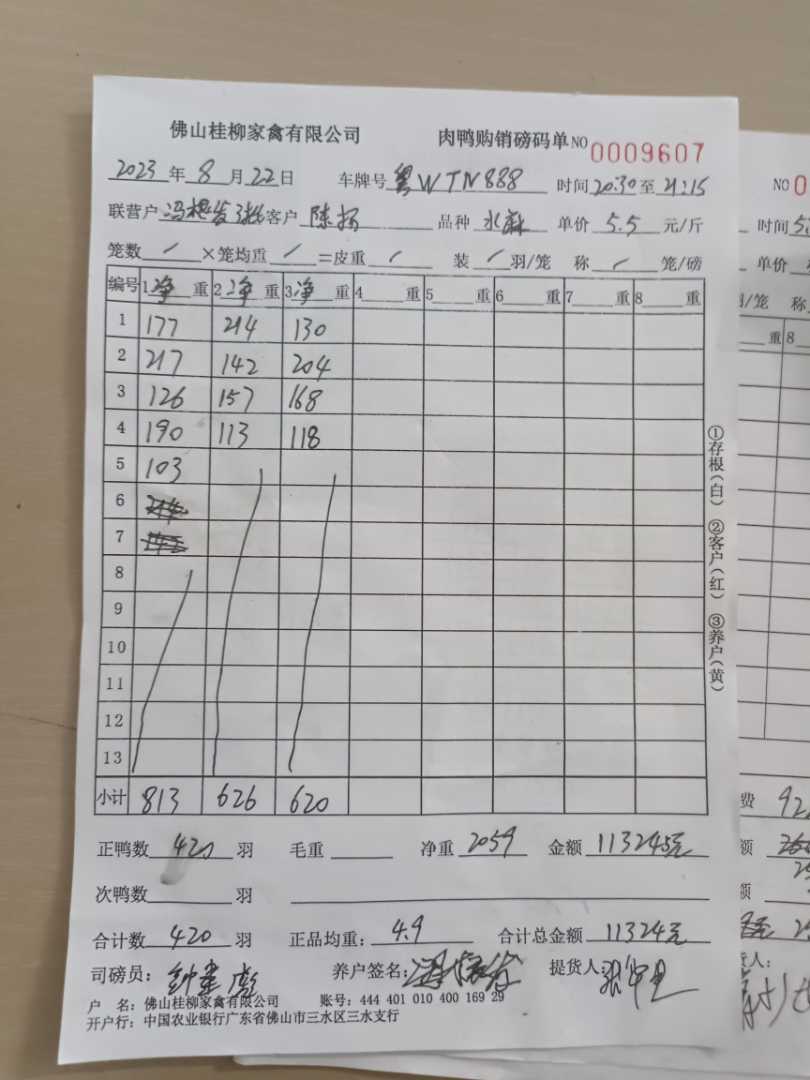 佛山桂柳家禽有限公司 肉鸭购销磅码单 NO 0009607
2023 年 8 月 22 日 车牌号 粤WTN888 时间 20:30 至 21:15
联营户 冯 客户 陈扬 品种 水麻 单价 5.5 元/斤
笼数 / ×笼均重 / =皮重 / 装 / 羽/笼 称 / 笼/磅
编号 1 净 重 2 净 重 3 净 重 4 重 5 重 6 重 7 重 8 重
1 177 214 130
2 217 142 204
3 126 157 168
4 190 113 118
5 103
6
7
8
9
10
11
12
13
小计 813 626 620
正鸭数 420 羽 毛重 净重 2059 金额 11324.5元
次鸭数 羽
合计数 420 羽 正品均重: 4.9 合计总金额 11324元
司磅员: 养户签名: 提货人:
户 名: 佛山桂柳家禽有限公司 账号: 444 401 010 400 169 29
开户行: 中国农业银行广东省佛山市三水区三水支行
①存根(白) ②客户(红) ③养户(黄)
NO 0
时间
单价
羽/笼 称
重 8
费
额
额